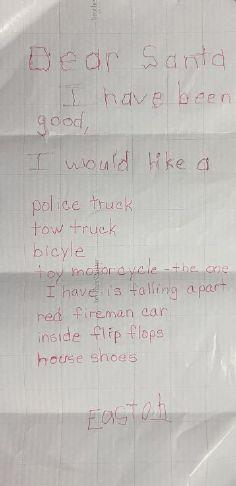 Dear Santa
I have been
good,
I would like a
police truck
tow truck
bicyle
toy motorcycle - the one
I have is falling apart
red fireman car
inside flip flops
house shoes
Easton